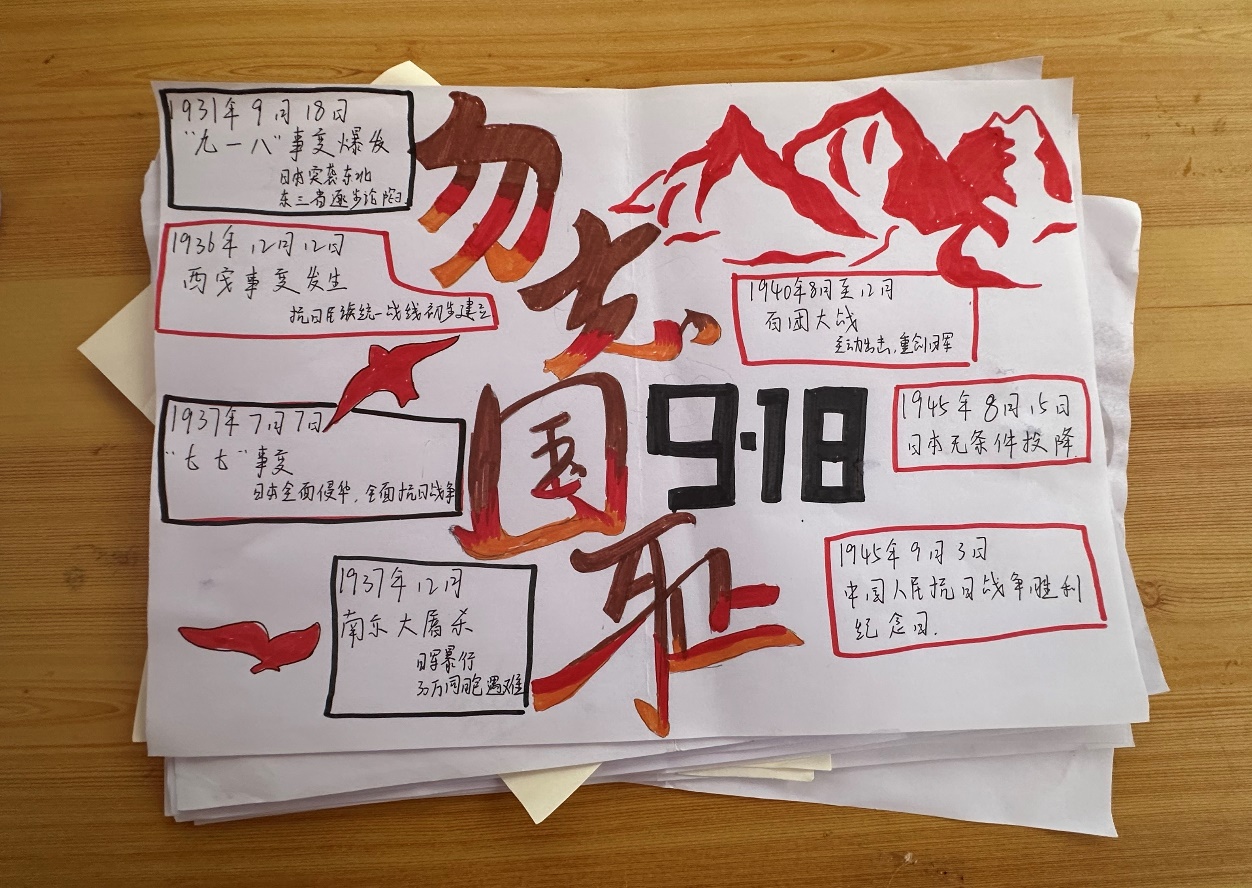 1931年9月18日
"九一八"事变爆发
日本突袭东北
东三省逐步沦陷
1936年12月12日
西安事变发生
抗日民族统一战线初步建立
1937年7月7日
"七七"事变
日本全面侵华,全面抗日战争
1937年12月
南京大屠杀
日军暴行
30万同胞遇难
勿忘国耻
9·18
1940年8月至12月
百团大战
主动出击,重创日军
1945年8月15日
日本无条件投降
1945年9月3日
中国人民抗日战争胜利
纪念日.